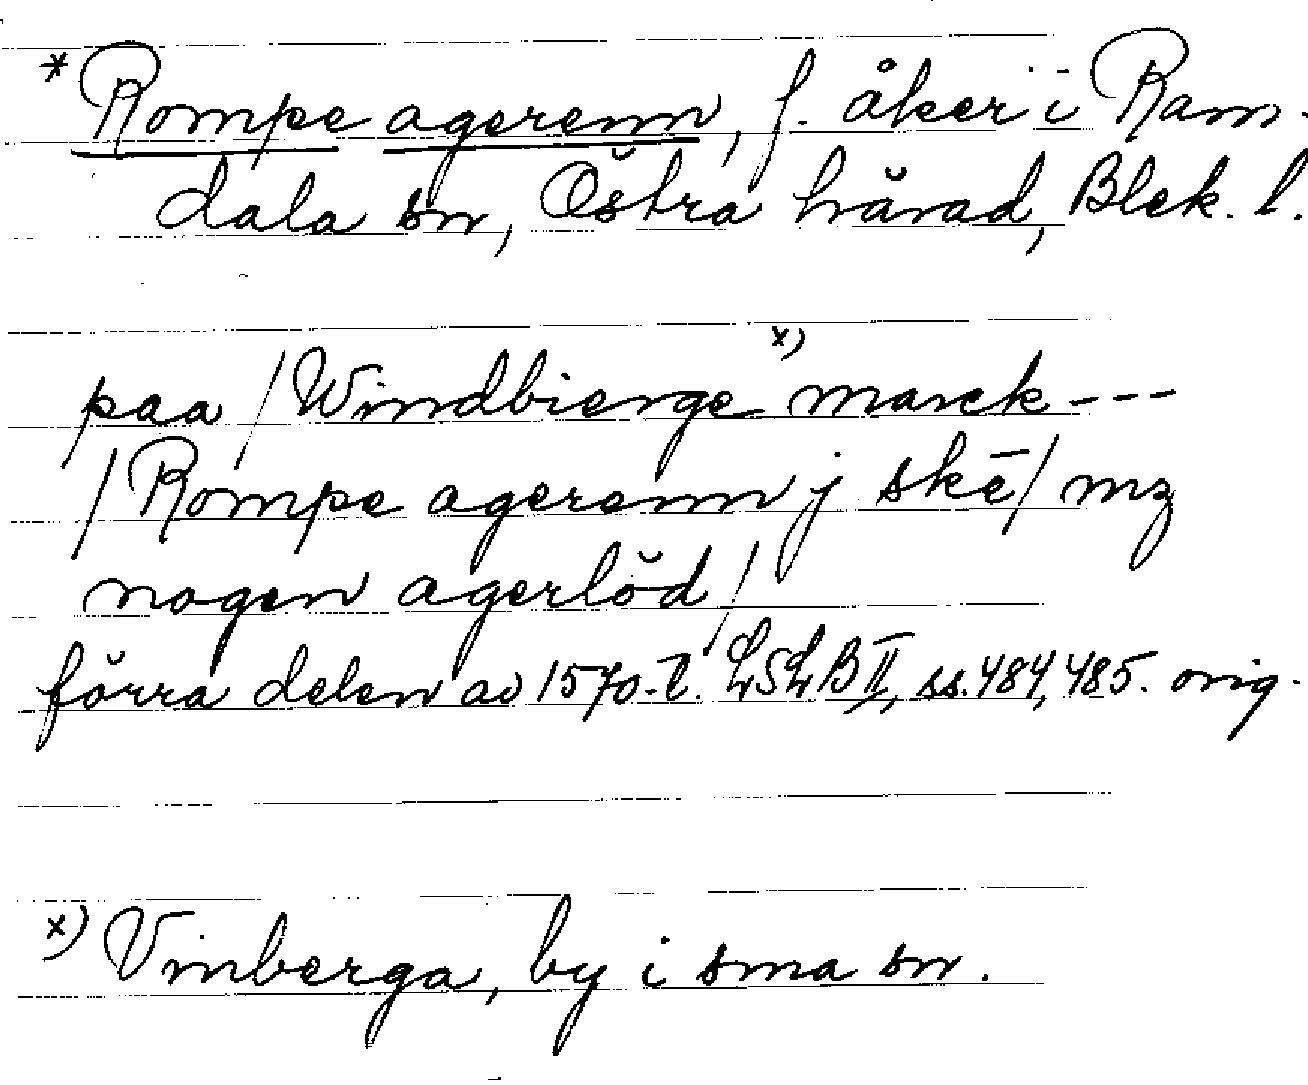 * Rompe agerenn, f. åker i Ram-
dala sn, Östra härad, Blek. l.
paa /Windbierge x) marck ---
/Rompe agerenn j skē/ mz
nogen agerlöd/
förra delen av 1570-t. LSLB II, ss. 484, 485. orig.
x) Vinberga, by i sma sn.